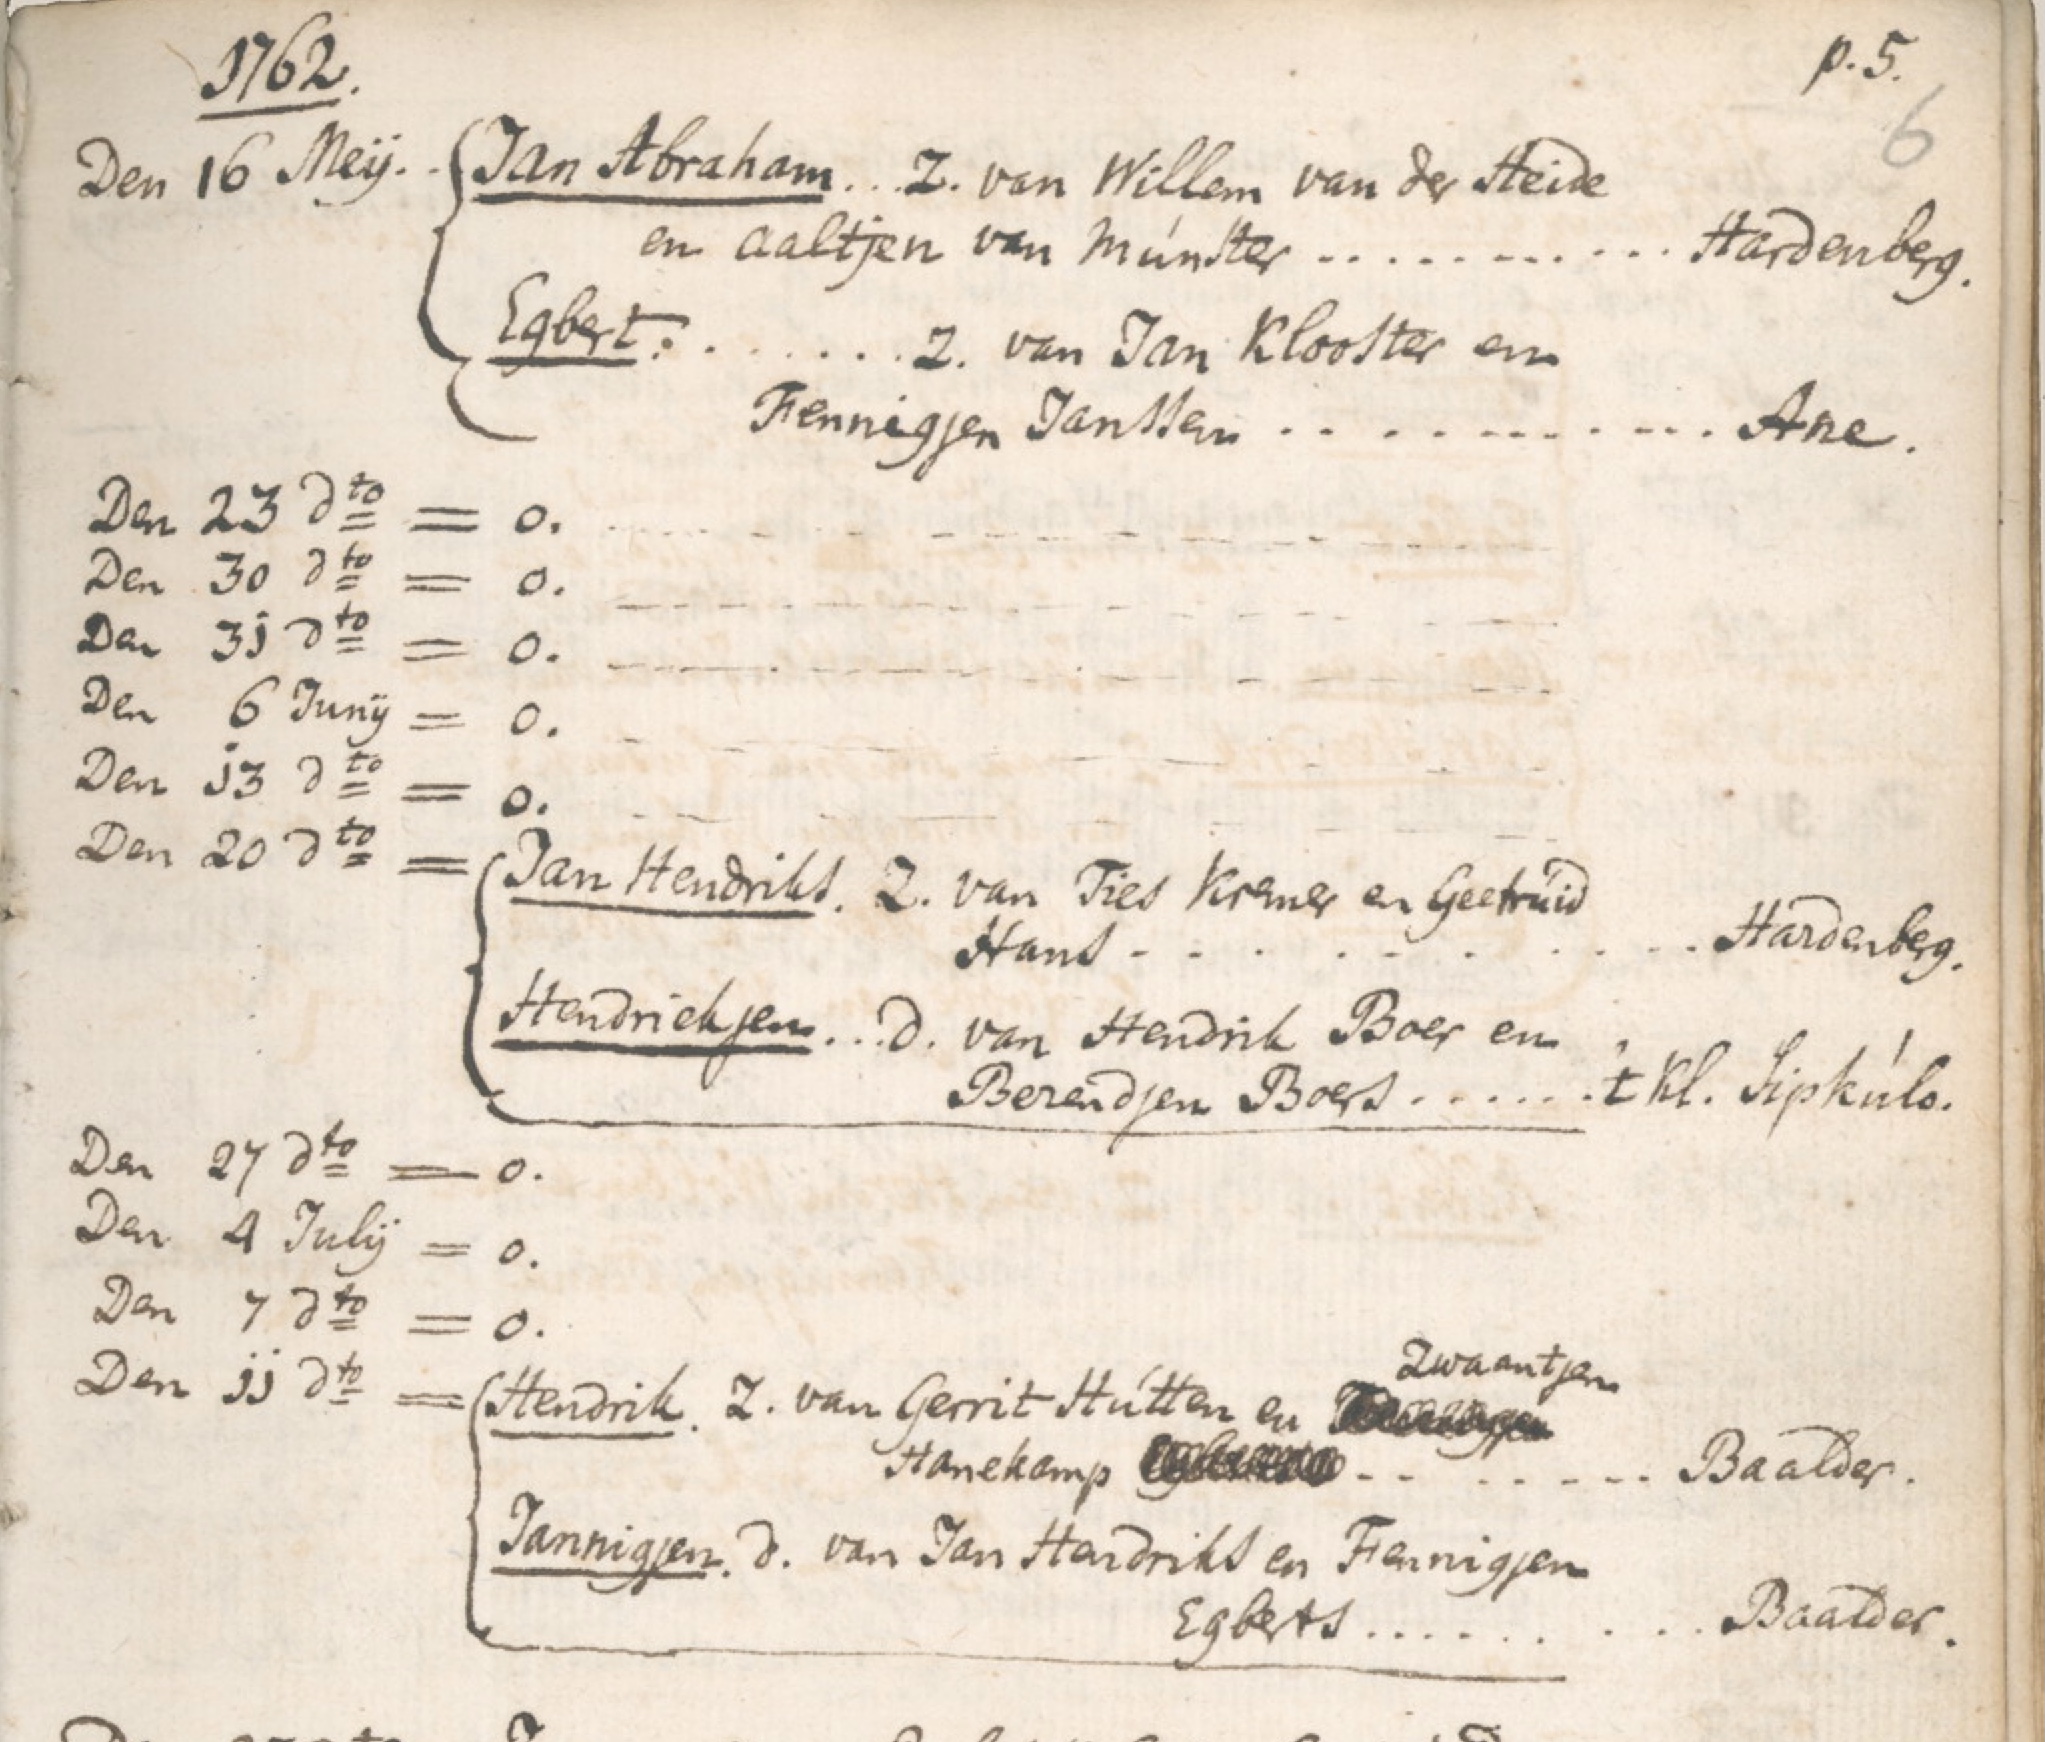 1762. p. 5.
6
Den 16 Meij. . Jan Abraham . . . Z. van Willem van der Heide
en aaltjen van Múnster . . . . . . . . . . . Hardenberg.
Egbert : . . . . . . . Z. van Jan Klooster en
Fennigjen Janssen . . . . . . . . . . . . Ane .
Den 23 dto = 0.
Den 30 dto = 0.
Den 3j dto = 0.
Den 6 Junij = 0.
Den j3 dto = 0.
Den 20 dto = Jan Hendriks . Z. van Ties Kremer en Geetrúid
Hans - . . . . . . . . . . Hardenberg.
Hendriekjen . . . d. van Hendrik Boer en
Berendjen Boers . . . . . . 't Kl. Sipkúlo.
Den 27 dto = 0.
Den 4 Julij = 0.
Den 7 dto = 0.
Den jj dto = Hendrik . Z. van Gerrit Hútten en Zwaantjen
Hanekamp . . . . . . . . Baalder .
Jannigjen . d. van Jan Hendriks en Fennigjen
Egberts . . . . . . . . . Baalder .